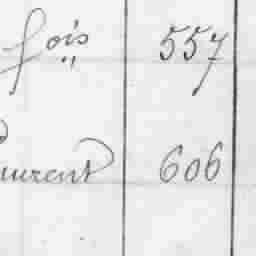 fois 557
"
urent 606